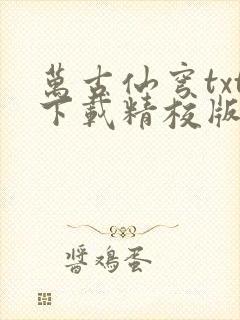 萬古仙穹txt
下載精校版
醬鴉蛋